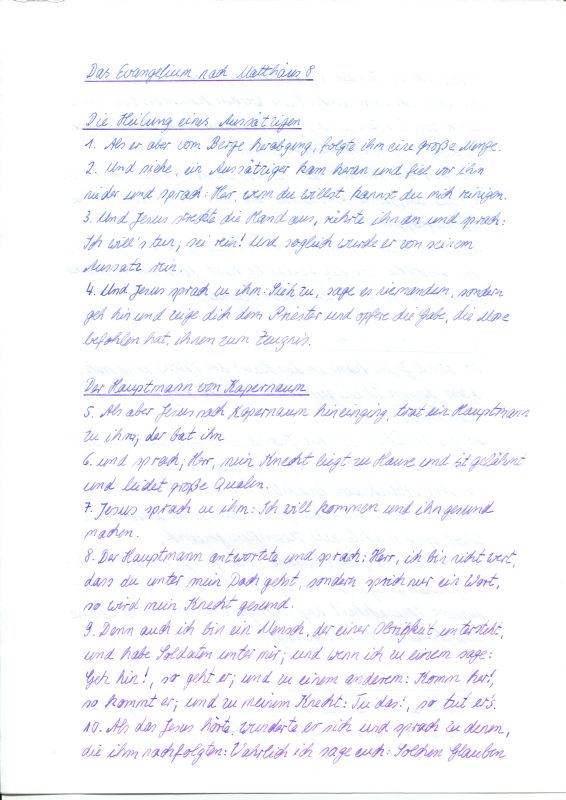 Das Evangelium nach Matthäus 8
Die Heilung eines Aussätzigen
1. Als er aber vom Berge herabging, folgte ihm eine große Menge.
2. Und siehe, ein Aussätziger kam heran und fiel vor ihm
nieder und sprach: Herr, wenn du willst, kannst du mich reinigen.
3. Und Jesus streckte die Hand aus, rührte ihn an und sprach:
Ich will's tun; sei rein! Und sogleich wurde er von seinem
Aussatz rein.
4. Und Jesus sprach zu ihm: Sieh zu, sage es niemandem, sondern
geh hin und zeige dich dem Priester und opfere die Gabe, die Mose
befohlen hat, ihnen zum Zeugnis.
Der Hauptmann von Kapernaum
5. Als aber Jesus nach Kapernaum hineinging, trat ein Hauptmann
zu ihm; der bat ihn
6. und sprach; Herr, mein Knecht liegt zu Hause und ist gelähmt
und leidet große Qualen.
7. Jesus sprach zu ihm: Ich will kommen und ihn gesund
machen.
8. Der Hauptmann antwortete und sprach; Herr, ich bin nicht wert,
dass du unter mein Dach gehst, sondern sprich nur ein Wort,
so wird mein Knecht gesund.
9. Denn auch ich bin ein Mensch, der einer Obrigkeit untersteht,
und habe Soldaten unter mir; und wenn ich zu einem sage:
Geh hin!, so geht er; und zu einem anderem: Komm her!,
so kommt er; und zu meinem Knecht: Tu das!, so tut er's.
10. Als das Jesus hörte, wunderte er sich und sprach zu denen,
die ihm nachfolgten: Wahrlich ich sage euch: Solchen Glauben